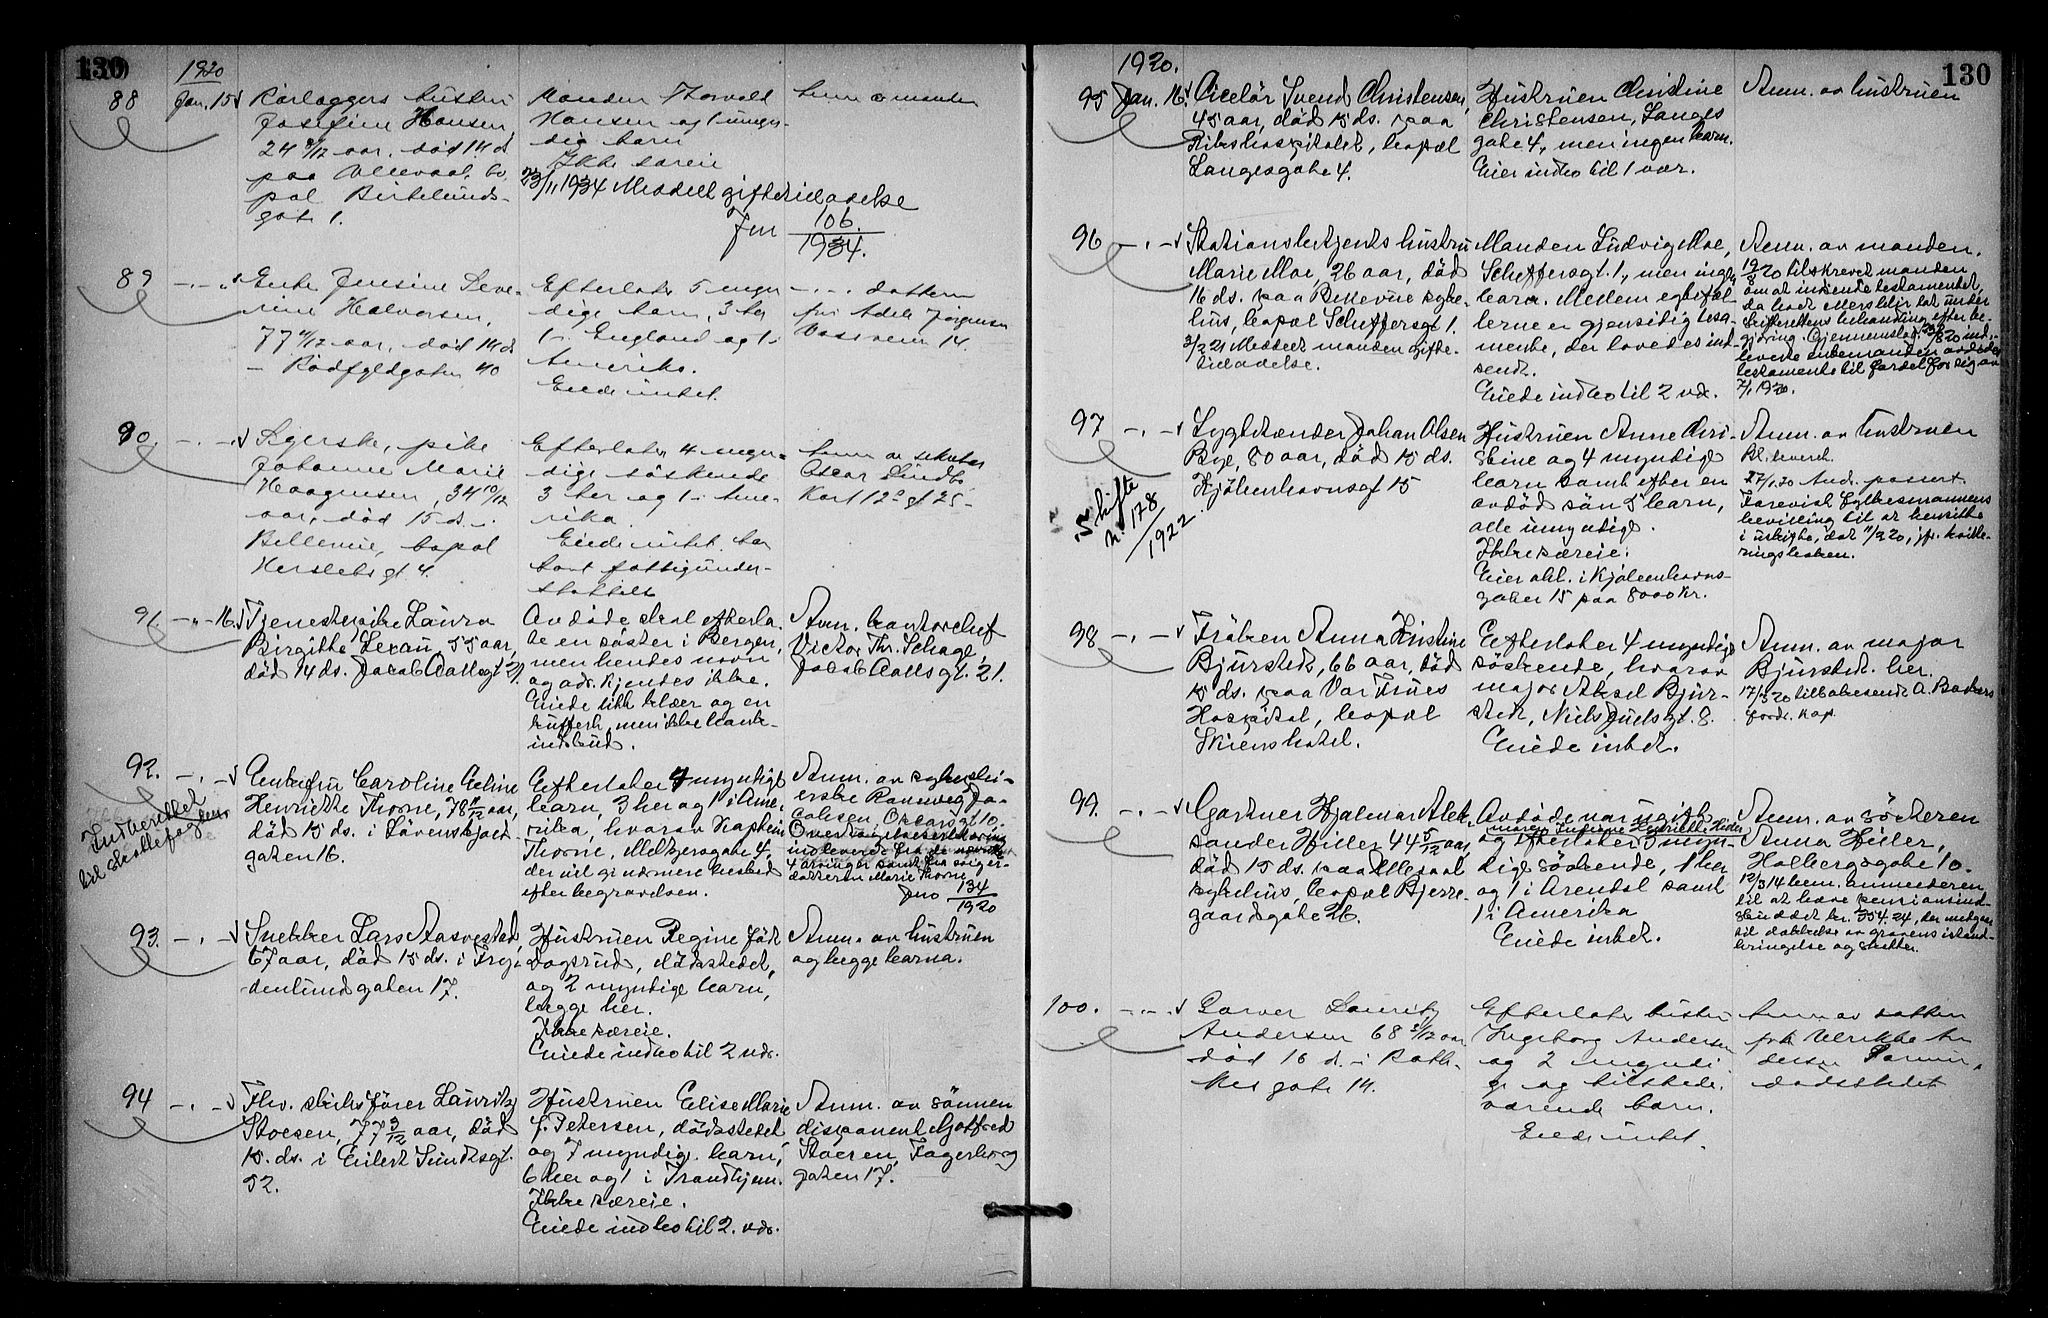 130
1920
88
Jan. 15
Rørlæggers hustru
Josefine Hansen,
24 8/12 aar, død 14 d.
paa Ullevaal, bo-
pæl Birkelunds-
gate 1.
Manden Thorvald
Hansen og 1 umyn-
dig barn
Ikke særeie
23/11 1934 Meddelt giftetilladelse
Jnr 106
1934.
Anm. av manden
89
Enke Jensine Seve-
rine Halvorsen,
77 aar, død 14 d.
Rødfyldgaten 40
Efterlater 5 myn-
dige barn, 3 her
1 i England og 1 i
Amerika.
Eiede intet.
datteren
fru Adele Jørgensen
Vossveien 14.
90.
Syerske, pike
Johanne Marie
Haagensen, 34 10/12
aar, død 15 d. i
Bellevue, bopæl
Herslebs gt. 4.
Efterlater 4 myn-
dige søskende
3 her og 1 i Ame-
rika.
Eiede intet, har
havt fattigunder-
støttelse
Anm. av sekretær
Oscar Lindbo
Karl 12s gt 25
91.
16.
Tjenestepike Laura
Birgithe Lexau, 55 aar,
død 14 ds. Jacob Aallsgt 21.
Avdøde skal efterla-
te en søster i Bergen,
men hendes navn
og adr. kjendes ikke.
Eiede litt klær og en
kuffert, men ikke bank-
indskud.
Anm. kontorchef
Victor Thr. Schage
Jacob Aalls gt. 21.
92.
Indberettet
til skattefogden
Enkefru Caroline Eline
Henriette Thorne, 78 aar,
død 15 ds. i Løvenskjold-
gaten 16.
Efterlater 4 myndige
barn, 3 her og 1 i Ame-
rika, hvorav kaptein
Thorne, Meltzersgate 4,
der vil gi nærmere besked
efter begravelsen.
Anm. av sykeplei-
erske Rannveig Ja-
cobsen, Oscarsgt 10.
Overtagelseserklæring
indleveret fra de
4 arvinger samt fra sviger-
datteren Marie Thorne
Jnr 134
1920
93.
Snekker Lars Aasvestad
67 aar, død 15 ds. i Fry-
denlundgaten 17.
Hustruen Regine født
Dogsrud, dødsstedet,
og 2 myndige barn,
begge her.
Ikke særeie.
Eiede indbo til 2 vdr.
Anm. av hustruen
og begge barna.
94
Fhv. skibsfører Lauritz
Stoesen, 77 3/12 aar, død
15. ds. i Eilert Sundtsgt.
52.
Hustruen Elise Marie
f. Petersen, dødsstedet
og 7 myndig. barn,
6 her og 1 i Trondhjem.
Ikke særeie.
Eiede indbo til 2. vdr.
Anm. av sønnen
disponent Gotfred
Stoesen, Fagerborg
gaten 17.
1920.
130
95
Jan. 16.
Ciselør Svend Christensen,
45 aar, død 15 ds. paa
Rikshospitalet, bopæl
Langesgate 4.
Hustruen Christine
Christensen, Langes
gate 4, men ingen barn.
Eier indbo til 1 vær.
Anm. av hustruen
96
Stationsbetjents hustru
Marie Moe, 26 aar, død
16 ds. paa Bellevue syke-
hus, bopæl Scheffersgt 1.
3/2 21 Meddelt manden gifte-
tilladelse.
Manden Ludvig Moe,
Scheffersgt. 1, men ingen
barn. Mellem egtefæl-
lerne er gjensidig testa-
mente, der lovedes ind-
sendt.
Eiede indbo til 2 vdr.
Anm. av manden.
tilskrevet manden
om at indsende testamentet,
da boet ellers blir tat under
skifterettens behandling efter be-
gjæring. Gjennemslag. ind-
leverte enkemanden avdødes
testamente til fordel for sig av
7/1 1920.
97
Skifte
nr. 178
1922.
Lygtetænder Johan Olsen
Bye, 80 aar, død 15 ds.
Kjøbenhavnsgt 15
Hustruen Anne Chri-
stine og 4 myndige
barn samt efter en
avdød søn 5 barn,
alle umyndige.
Ikke særeie.
Eier akt. i Kjøbenhavns-
gaten 15 paa 8000 kr.
Anm. av hustruen
Bl. leveret.
27/1.20 Andr. passert
Forevist Fylkesmannens
bevilling til at hensitte
i uskifte, dat 11/2 20, jfr. kvitte-
ringsboken.
98
Frøken Anna Kristine
Bjurstedt, 66 aar, død
15 ds. paa Vor Frues
Hospital, bopæl
Skiens hotel.
Efterlater 4 myndige
søskende, hvorav
major Aksel Bjur-
stedt, Niels Juelsgt. 8.
Eiede intet.
Anm. av major
Bjurstedt. her.
17/3 20 tilbakesendt A. Backers
fordr. kap.
99.
Gartner Hjalmar Alek-
sander Hiller 44 5/12 aar,
død 15 ds. paa Ullevaal
sykehus, bopæl Bjerre-
gaardsgate 26.
Avdøde var ugift
og efterlater 3 myn-
dige søskende, 1 her
og 1 i Arendal samt
1 i Amerika
Eiede intet.
Anm. av søsteren
Anna Hiller,
Holbergsgate 10.
bem. anmelderen
til at hæve pensionsind-
skuddet kr. 354.24, der medgaar
til dækkelse av gravens istand-
bringelse og støtte.
100.
Garver Lauritz
Andersen 68 aar
død 16 d. i Rath-
kes gate 14.
Efterlater hustru
Ingeborg Andersen
og 2 myndi-
ge og tilstede-
værende barn.
Eiede intet.
Anm. av datter
frk Ulrikke An-
dersen
dødsstedet